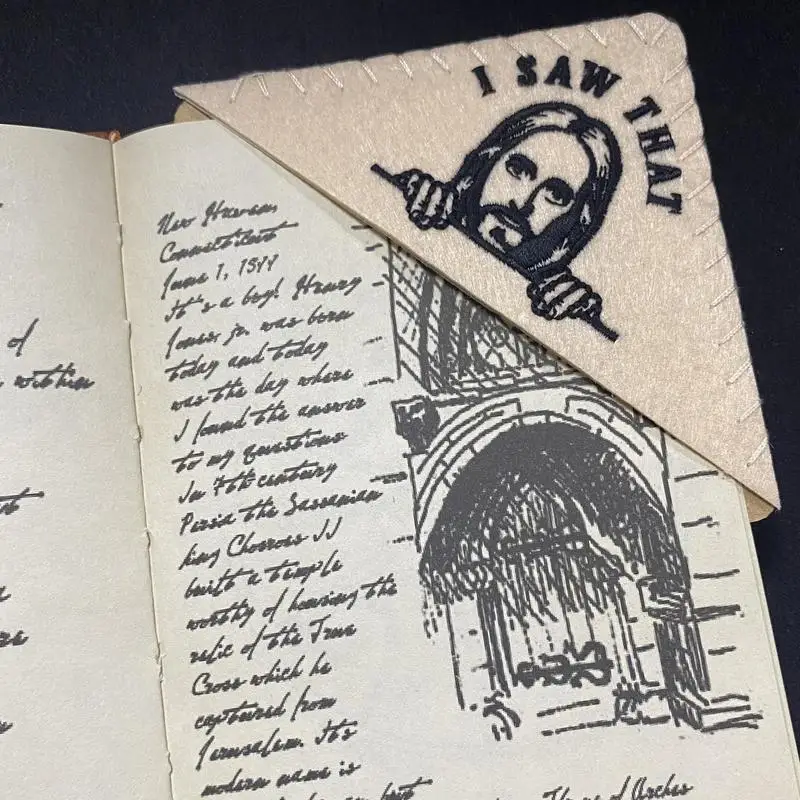 I SAW THAT
of
within
New Haven,
Connecticut
June 1, 1899
It's a boy! Henry
Jones, jr. was born
today and today
was the day where
I found the answer
to my questions
In 7th century
Persia the Sassanian
king Chosroes II
built a temple
worthy of housing the
relic of the True
Cross which he
captured from
Jerusalem. It's
modern name is
but
Throne of Arches